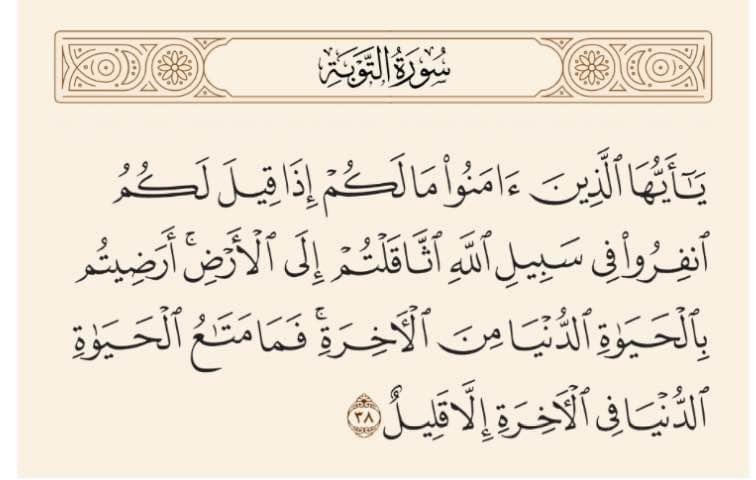 سُورَةُ التَّوْبَةِ
يَـٰٓأَيُّهَا ٱلَّذِينَ ءَامَنُوا۟ مَا لَكُمْ إِذَا قِيلَ لَكُمُ
ٱنفِرُوا۟ فِى سَبِيلِ ٱللَّهِ ٱثَّاقَلْتُمْ إِلَى ٱلْأَرْضِ ۚ أَرَضِيتُم
بِٱلْحَيَوٰةِ ٱلدُّنْيَا مِنَ ٱلْـَٔاخِرَةِ ۚ فَمَا مَتَـٰعُ ٱلْحَيَوٰةِ
ٱلدُّنْيَا فِى ٱلْـَٔاخِرَةِ إِلَّا قَلِيلٌ ٣٨